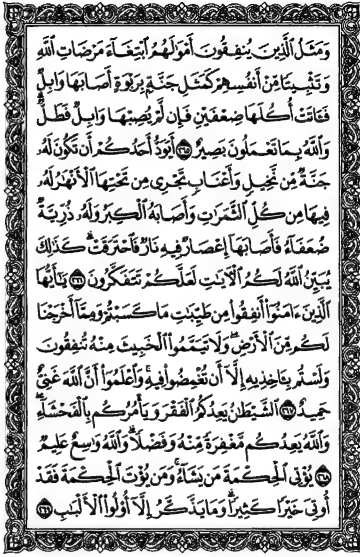 وَمَثَلُ ٱلَّذِينَ يُنفِقُونَ أَمْوَٰلَهُمُ ٱبْتِغَآءَ مَرْضَاتِ ٱللَّهِ
وَتَثْبِيتًا مِّنْ أَنفُسِهِمْ كَمَثَلِ جَنَّةٍۭ بِرَبْوَةٍ أَصَابَهَا وَابِلٌ
فَـَٔاتَتْ أُكُلَهَا ضِعْفَيْنِ فَإِن لَّمْ يُصِبْهَا وَابِلٌ فَطَلٌّ
وَٱللَّهُ بِمَا تَعْمَلُونَ بَصِيرٌ ٢٦٥ أَيَوَدُّ أَحَدُكُمْ أَن تَكُونَ لَهُۥ
جَنَّةٌ مِّن نَّخِيلٍ وَأَعْنَابٍ تَجْرِى مِن تَحْتِهَا ٱلْأَنْهَٰرُ لَهُۥ
فِيهَا مِن كُلِّ ٱلثَّمَرَٰتِ وَأَصَابَهُ ٱلْكِبَرُ وَلَهُۥ ذُرِّيَّةٌ
ضُعَفَآءُ فَأَصَابَهَآ إِعْصَارٌ فِيهِ نَارٌ فَٱحْتَرَقَتْ ۗ كَذَٰلِكَ
يُبَيِّنُ ٱللَّهُ لَكُمُ ٱلْـَٔايَٰتِ لَعَلَّكُمْ تَتَفَكَّرُونَ ٢٦٦ يَٰٓأَيُّهَا
ٱلَّذِينَ ءَامَنُوٓا۟ أَنفِقُوا۟ مِن طَيِّبَٰتِ مَا كَسَبْتُمْ وَمِمَّآ أَخْرَجْنَا
لَكُم مِّنَ ٱلْأَرْضِ ۖ وَلَا تَيَمَّمُوا۟ ٱلْخَبِيثَ مِنْهُ تُنفِقُونَ
وَلَسْتُم بِـَٔاخِذِيهِ إِلَّآ أَن تُغْمِضُوا۟ فِيهِ ۚ وَٱعْلَمُوٓا۟ أَنَّ ٱللَّهَ غَنِىٌّ
حَمِيدٌ ٢٦٧ ٱلشَّيْطَٰنُ يَعِدُكُمُ ٱلْفَقْرَ وَيَأْمُرُكُم بِٱلْفَحْشَآءِ ۖ
وَٱللَّهُ يَعِدُكُم مَّغْفِرَةً مِّنْهُ وَفَضْلًا ۗ وَٱللَّهُ وَٰسِعٌ عَلِيمٌ
٢٦٨ يُؤْتِى ٱلْحِكْمَةَ مَن يَشَآءُ ۚ وَمَن يُؤْتَ ٱلْحِكْمَةَ فَقَدْ
أُوتِىَ خَيْرًا كَثِيرًا ۗ وَمَا يَذَّكَّرُ إِلَّآ أُو۟لُوا۟ ٱلْأَلْبَٰبِ ٢٦٩